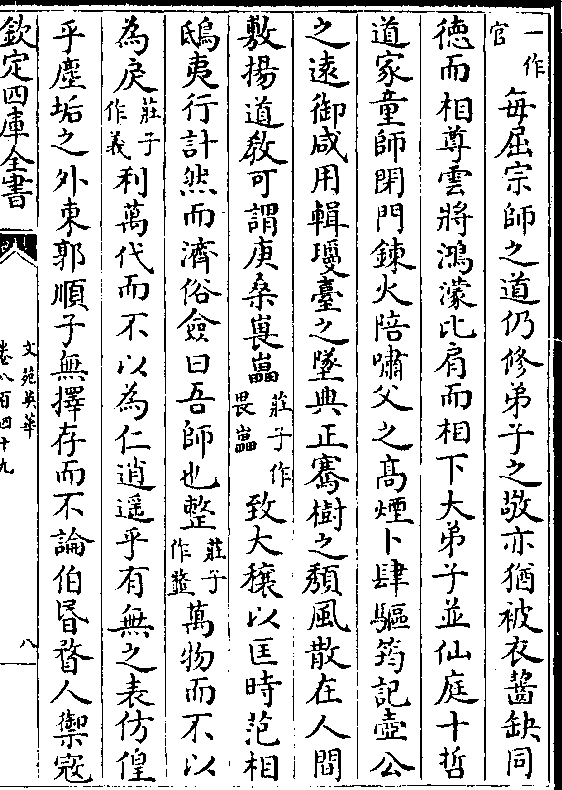 一作官每屈宗師之道仍修弟子之敬亦猶被衣齧缺同
徳而相尊雲將鴻濛比肩而相下大弟子並仙庭十哲
道家童師閉門鍊火陪嘯父之髙煙卜肆驅筠記壺公
之遠御咸用輯瓊臺之墜典正騫樹之頽風散在人間
敷揚道教可謂庚桑嵔㠥莊子作畏壘致大穰以匡時范相
鴟夷行計然而濟俗僉曰吾師也整莊子作𩐎萬物而不以
為戾莊子作義利萬代而不以為仁逍遥乎有無之表仿偟
乎塵垢之外東郭順子無擇存而不論伯昬瞀人禦寇
欽定四庫全書
文苑英華
卷八百四十九
八